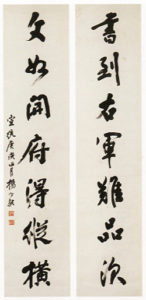 書到右軍難品次
文如開府得縱橫
宣統庚戌月楊守敬